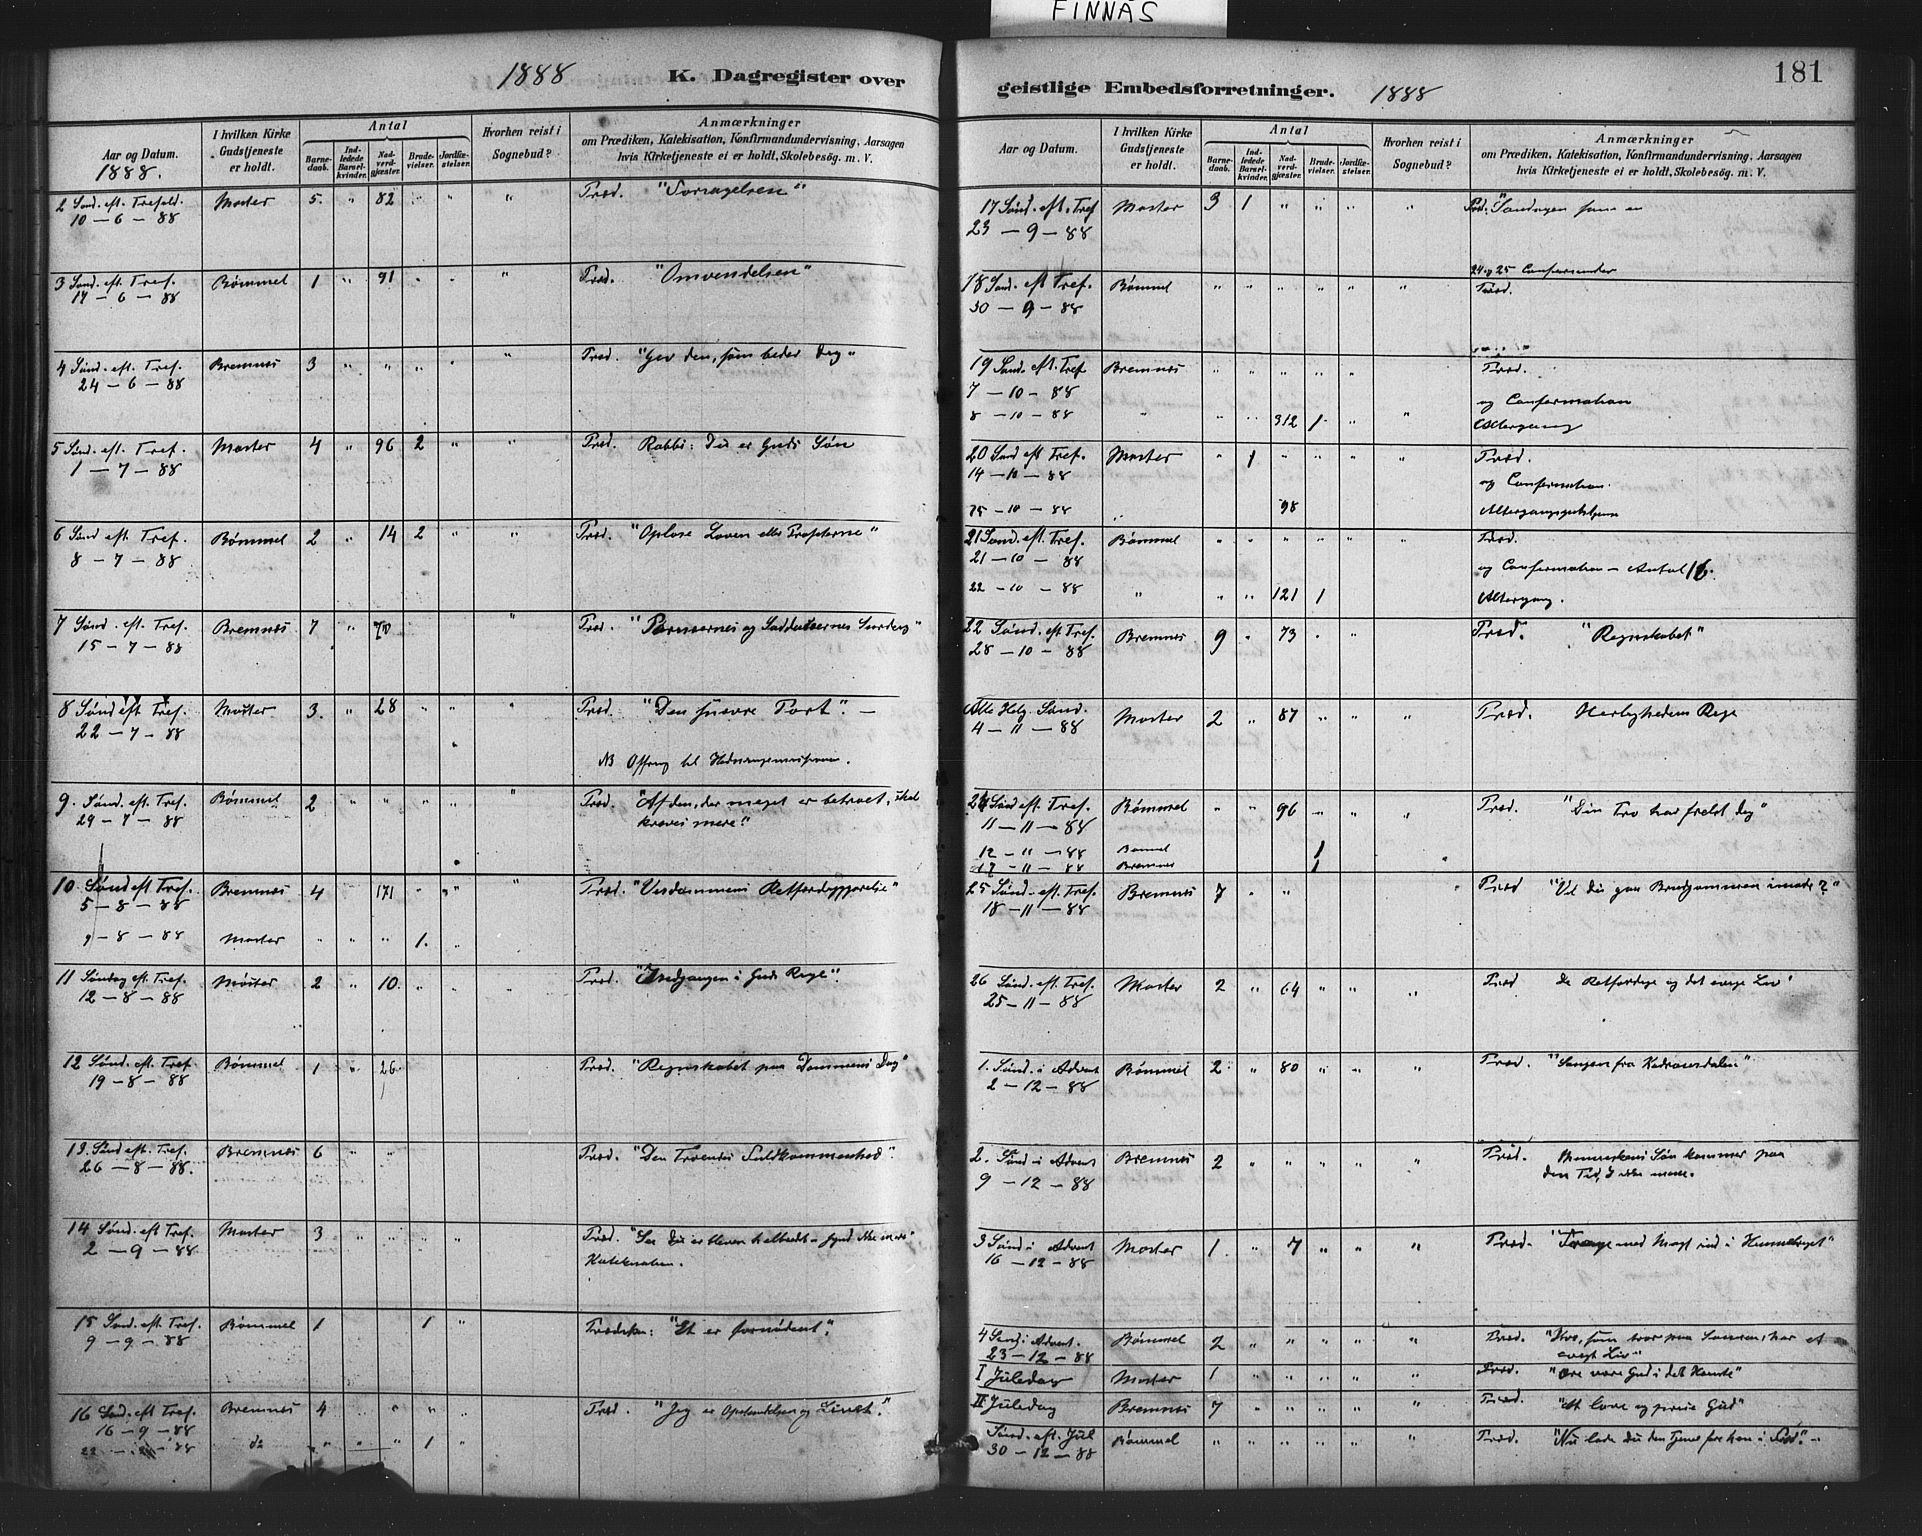 FINNÅS
1888 K. Dagregister over
Aar og Datum. 1888.
I hvilken Kirke Gudstjeneste er holdt.
Antal
Barnedaab.
Indledede Barselkvinder.
Nadverdgjæster.
Brudevielser.
Jordfæstelser.
Hvorhen reist i Sognebud?
Anmærkninger
om Prædiken, Katekisation, Konfirmandundervisning, Aarsagen
hvis Kirketjeneste ei er holdt, Skolebesög. m. V.
2 Sønd. eft. Trefold. Moster 5. " 82 " " " Præd.
10-6-88
3 Sønd. eft. Tref. Bømmel 1 " 91 " " " Præd. "Omvendelsen"
17-6-88
4 Sønd. eft. Tref. Bremnes 3 " " " " " Præd. "Giv den, som beder Dig"
24-6-88
5 Sønd. eft. Tref. Moster 4 " 96 2 " " Præd. Rabbi: Du er Guds Søn
1-7-88
6 Sønd eft. Tref. Bømmel 2 " 14 2 " " Præd. "Opløse Loven eller Profeterne"
8-7-88
7 Sønd. eft. Tref. Bremnes 7 " " Præd. og Saddukæernes Surdeig"
15-7-88
8 Sønd eft Tref. Moster 3. " 28 " " " Præd. "Den snevre Port". —
22-7-88
NB Offring til
9. Sønd. eft. Tref. Bømmel 2 " " " " " Præd. "Af den, der meget er betroet, skal
29-7-88 kræves mere".
10 Sønd eft Tref. Bremnes 4 " 171 " " " Præd. "
5-8-88
9-8-88 Moster " " " 1. "
11 Søndag eft Tref. Moster 2 " 10. " " " Præd. "Indgangen i Guds Rige".
12-8-88
12 Sønd. eft. Tref. Bømmel 1 " 26. Præd. "Regnskabet paa Dommens Dag"
19-8-88
13. Sønd eft. Tref. Bremnes 6 " Præd. "Den Troendes Fuldkommenhed"
26-8-88.
14 Sønd. eft Tref. Moster 3 " " " " Præd. "See Du er bleven helbredt – synd ikke mere"
2-9-88
15 Sønd. eft. Tref. Bømmel 1 1 " Prædiken: "Et er fornødent".
9-9-88
16 Sønd. eft Tref. Bremnes 4 " " " " Præd. "Jeg er Opstandelsen og Livet."
16-9-88
do " " " 1 "
geistlige Embedsforretninger. 1888
181
Aar og Datum.
I hvilken Kirke Gudstjeneste er holdt.
Antal
Barnedaab.
Indledede Barselkvinder.
Nadverdgjæster.
Brudevielser.
Jordfæstelser.
Hvorhen reist i Sognebud?
Anmærkninger
om Prædiken, Katekisation, Konfirmandundervisning, Aarsagen
hvis Kirketjeneste ei er holdt, Skolebesög. m. V.
17 Sønd. eft. Tref Moster 3 1 " " " " Præd.
23-9-88
18 Sønd. eft Tref. Bømmel " " " " " " Præd.
30-9-88
19 Sønd. eft. Tref Bremnes " " " " " Præd.
7-10-88 og Confirmation
8-10-88 " " " 312 1 " " Altergang
20 Sønd eft Tref. Moster " 1 " " " " Præd.
14-10-88 og Confirmation.
15-10-88 " 98
21 Sønd. eft Tref. Bømmel " " " " " " Præd.
21-10-88 og Confirmation – Antal 16.
22-10-88 " " " 121 1 Altergang.
22 Sønd. eft Tref. Bremnes 9 " 73 " " Præd. "Regnskabet"
28-10-88
Alle Helg. Sønd. Moster 2 " 87 " " " Præd. Herlighedens Rige
4-11-88
24 Sønd eft Tref. Bømmel " " 96 " " " Præd. "Din Tro har frelst Dig"
11-11-88
12-11-88 Bømmel 1
17-11-88 Bremnes 1
25 Sønd. eft Tref. Bremnes 7 " " " Præd "Vil Du gaa Brudgommen imøde?"
18-11-88
26 Sønd. eft. Tref. Moster 2 " 64 " " " Præd De Retfærdige og det evige Liv"
25-11-88
1. Sønd. i Advent Bømmel 2 " 80 " " " Præd. "Sangen fra Kedronsdalen"
2-12-88
2. Sønd i Advent Bremnes 2 " " " " " Præd. Menneskens Søn kommer paa
9-12-88 den Tid, I ikke mene.
3 Sønd i Advent Moster 1. " 7 " " " Præd. med Magt ind i Himmeriget"
16-12-88
4 Sønd i Advent. Bømmel 2 " " " " " Præd. "Hvo, som tror paa Sønnen, har et
23-12-88 evigt Liv"
I Juledag Moster 1 " " " " " Præd. "Ære være Gud i det Høieste"
II Juledag Bremnes 7 " " " " " Præd. "At love og prise Gud"
Sønd. eft. Jul Bømmel " " " " " " Præd. "Nu lader du din Tjener fare hen i Fred". –
30-12-88